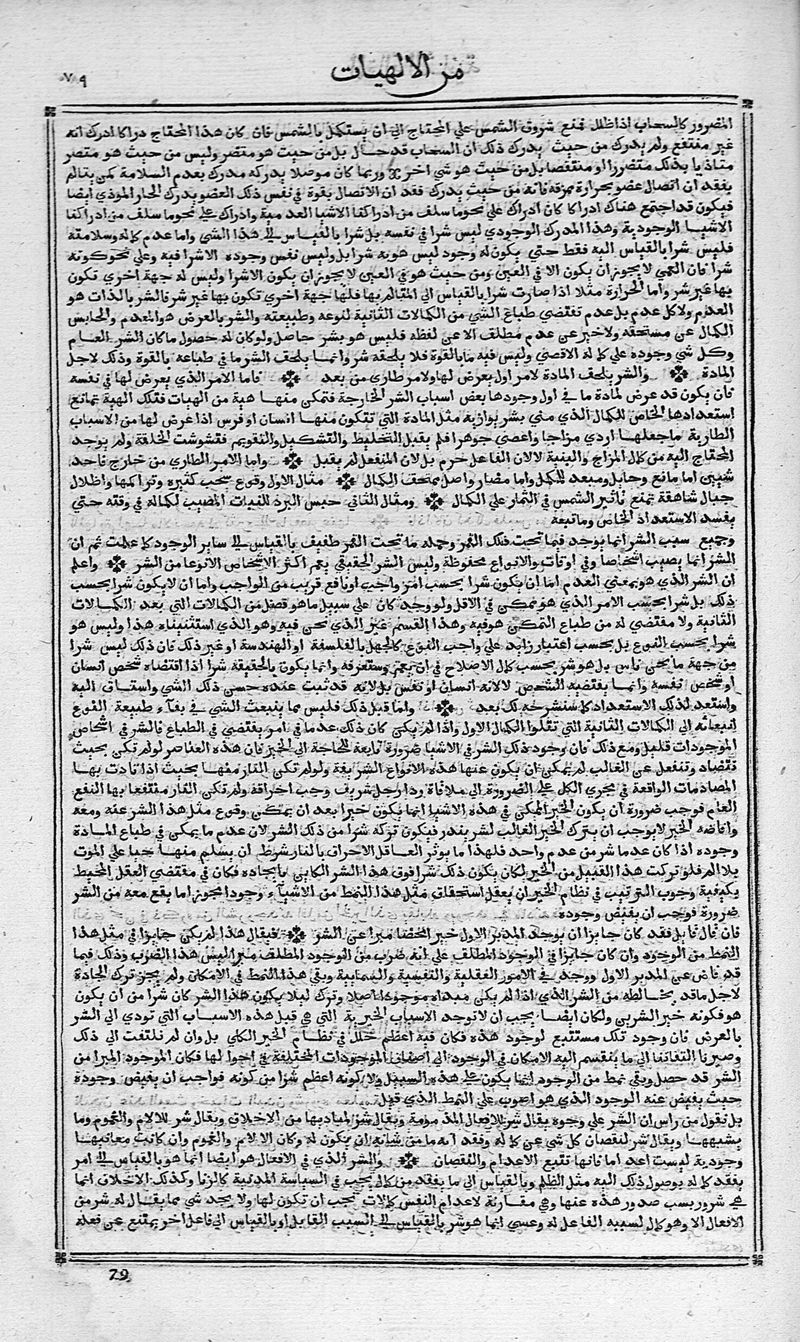 من الالهيات
٧٩
المضرور كالسحاب اذا ظلل فمنع شروق الشمس علي المحتاج الي ان يستكمل بالشمس فان كان هذا المحتاج دراكا ادرك انه
غير منتفع ولم يدرك من حيث يدرك ذلك ان السحاب قد حال بل من حيث هو مبصر وليس من حيث هو مبصر
متاذيا بذلك متضررا او منتقصا بل من حيث هو شي اخر وربما كان موصلا يدركه مدرك بعدم السلامة كمن يتالم
بفقد ان اتصال عضو بحرارة ممزقة فانه من حيث يدرك فقد ان الاتصال بقوة في نفس ذلك العضو يدرك الحار الموذي ايضا
فيكون قد اجتمع هناك ادراكان ادراك علي نحو ما سلف من ادراكنا الاشيا العدمية وادراك علي نحو ما سلف من ادراكنا
الاشيا الوجودية وهذا المدرك الوجودي ليس شرا في نفسه بل شرا بالقياس الي هذا الشي واما عدم كماله وسلامته
فليس شرا بالقياس اليه فقط حتي يكون له وجود ليس هو به شرا بل وليس نفس وجوده الا شرا فيه وعلي نحو كونه
شرا فان العمي لا يجوز ان يكون الا في العين ومن حيث هو في العين لا يجوز ان يكون الا شرا وليس له جهة اخري تكون
بها غير شر واما الحرارة مثلا اذا صارت شرا بالقياس الي المتالم بها فلها جهة اخري تكون بها غير شر فالشر بالذات هو
العدم ولا كل عدم بل عدم مقتضي طباع الشي من الكمالات الثانية لنوعه وطبيعته والشر بالعرض هو المعدم والحابس
الكمال عن مستحقه ولا خير عن عدم مطلق الا عن لفظه فليس هو بشر حاصل ولو كان له حصول ما كان الشر العام
وكل شي وجوده علي كماله الاقصي وليس فيه ما بالقوة فلا يلحقه شر وانما يلحق الشر ما في طباعه ما بالقوة وذلك لاجل
المادة والشر يلحق المادة لامر اول يعرض لها ولامر طاري من بعد فاما الامر الذي يعرض لها في نفسه
فان يكون قد عرض لمادة ما في اول وجودها بعض اسباب الشر الخارجة فتمكن منها هية من الهيات فتلك الهية تمانع
استعدادها الخاص للكمال الذي مني بشر يوازيه مثل المادة التي تتكون منها انسان او فرس اذا عرض لها من الاسباب
الطارية ما جعلها اردي مزاجا واعصي جوهرا فلم يقبل التخطيط والتشكيل والتقويم فتشوشت الخلقة ولم يوجد
المحتاج اليه من كمال المزاج والبنية لا لان الفاعل حرم بل لان المنفعل لم يقبل واما الامر الطاري من خارج فاحد
شيين اما مانع وحايل ومبعد للمكمل واما مضار واصل ممحق للكمال مثال الاول وقوع سحب كثيرة وتراكمها واظلال
جبال شاهقة تمنع تاثير الشمس في الثمار علي الكمال ومثال الثاني حبس البرد للنبات المصيب لكماله في وقته حتي
يفسد الاستعداد الخاص وما تبعه
وجميع سبب الشر انما يوجد فيما تحت فلك القمر وجملة ما تحت القمر طفيف بالقياس الي ساير الوجود كما علمت ثم ان
الشر انما يصيب اشخاصا وفي اوقات والانواع محفوظة وليس الشر الحقيقي يعم اكثر الاشخاص الا نوعا من الشر واعلم
ان الشر الذي هو بمعني العدم اما ان يكون شرا بحسب امر واجب او نافع قريب من الواجب واما ان لا يكون شرا بحسب
ذلك بل شرا بحسب الامر الذي هو ممكن في الاقل ولو وجد كان علي سبيل ما هو فضل من الكمالات التي بعد الكمالات
الثانية ولا مقتضي له من طباع الممكن هو فيه وهذا القسم غير الذي نحن فيه وهو الذي استثنيناه هذا وليس هو
شرا بحسب النوع بل بحسب اعتبار زايد علي واجب النوع كالجهل بالفلسفة او الهندسة او غير ذلك فان ذلك ليس شرا
من جهة ما نحن ناس بل هو شر بحسب كمال الاصلاح في ان يعم وستعرفه وانما يكون بالحقيقة شرا اذا اقتضاه شخص انسان
او شخص نفسه وانما يقتضيه الشخص لا لانه انسان او نفس بل لانه قد ثبت عنده حسن ذلك الشي واستاق اليه
واستعد لذلك الاستعداد كما سنشرحه لك بعد واما قبل ذلك فليس مما ينبعث الشي في بقاء طبيعة النوع
انبعاثه الي الكمالات الثانية التي تتلوا الكمال الاول واذا لم يكن كان ذلك عدما في امر يقتضي في الطباع فالشر في اشخاص
الموجودات قليل ومع ذلك فان وجود ذلك الشر في الاشيا ضرورة تابعة للحاجة الي الخير فان هذه العناصر لو لم تكن بحيث
تتضاد وتنفعل عن الغالب لم يمكن ان يكون عنها هذه الانواع الشريفة ولو لم تكن النار منها بحيث اذا تادت بها
المصادمات الواقعة في مجري الكل علي الضرورة الي ملاقاة ردا رجل شريف وجب احراقه لم تكن النار منتفعا بها النفع
العام فوجب ضرورة ان يكون الخير الممكن في هذه الاشيا انما يكون خيرا بعد ان يمكن وقوع مثل هذا الشر عنه ومعه
وافاضة الخير لا يوجب ان يترك الخير الغالب لشر يندر فيكون تركه شرا من ذلك الشر لان عدم ما يمكن في طباع المادة
وجوده اذا كان عدما شر من عدم واحد فلهذا ما يوثر العاقل الاحراق بالنار بشرط ان يسلم منها حيا علي الموت
بلا الم فلو تركت هذا القبيل من الخير لكان يكون ذلك شرا فوق هذا الشر الكاين بايجاده فكان في مقتضي العقل المحيط
بكيفية وجوب الترتيب في نظام الخير ان يعقل استحقاق مثل هذا النمط من الاشياء وجودا مجوزا ما يقع معه من الشر
ضرورة فوجب ان يفيض وجوده
فان قال قايل فقد كان جايزا ان يوجد المدبر الاول خيرا محضا مبرا عن الشر فيقال هذا لم يكن جايزا في مثل هذا
النمط من الوجود وان كان جايزا في الوجود المطلق علي انه ضرب من الوجود المطلق مبرا ليس هذا الضرب وذلك فيما
قد فاض عن المدبر الاول ووجد في الامور العقلية والنفسية والسماوية وبقي هذا النمط في الامكان ولم يجز ترك ايجاده
لاجل ما قد يخالطه من الشر الذي اذا لم يكن مبداه موجودا اصلا وترك ليلا يكون هذا الشر كان شرا من ان يكون
هو فكونه خير الشرين ولكان ايضا يجب ان لا توجد الاسباب الخيرية التي هي قبل هذه الاسباب التي تودي الي الشر
بالعرض فان وجود تلك مستتبع لوجود هذه فكان فيه اعظم خلل في نظام الخير الكلي بل وان لم نلتفت الي ذلك
وصيرنا التفاتنا الي ما ينقسم اليه الامكان في الوجود الي اصناف الموجودات المختلفة في احوالها فكان الموجود المبرا من
الشر قد حصل وبقي نمط من الوجود انما يكون علي هذه السبيل ولا كونه اعظم شرا من كونه فواجب ان يفيض وجوده
حيث يفيض عنه الوجود الذي هو اصوب علي النمط الذي قيل
بل نقول من راس ان الشر علي وجوه يقال شر للافعال المذمومة ويقال شر لمباديها من الاخلاق ويقال شر للالام والغموم وما
يشبهها ويقال شر لنقصان كل شي عن كماله وفقد انه ما من شانه ان يكون له وكان الالام والغموم وان كانت معانيها
وجودية ليست اعداما فانها تتبع الاعدام والنقصان والشر الذي في الافعال هو ايضا انما هو بالقياس الي امر
يفقد كماله بوصول ذلك اليه مثل الظلم وبالقياس الي ما يفقد من كمال يجب في السياسة المدنية كالزنا وكذلك الاخلاق انما
هي شرور بسبب صدور هذه عنها وهي مقارنة لاعدام النفس كمالات يجب ان تكون لها ولا يجد شي مما يقال له شر من
الافعال الا وهو كمال لسببه الفاعل له وعسي انما هو شر بالقياس الي السبب القابل او بالقياس الي فاعل اخر يمنع عن فعله
79